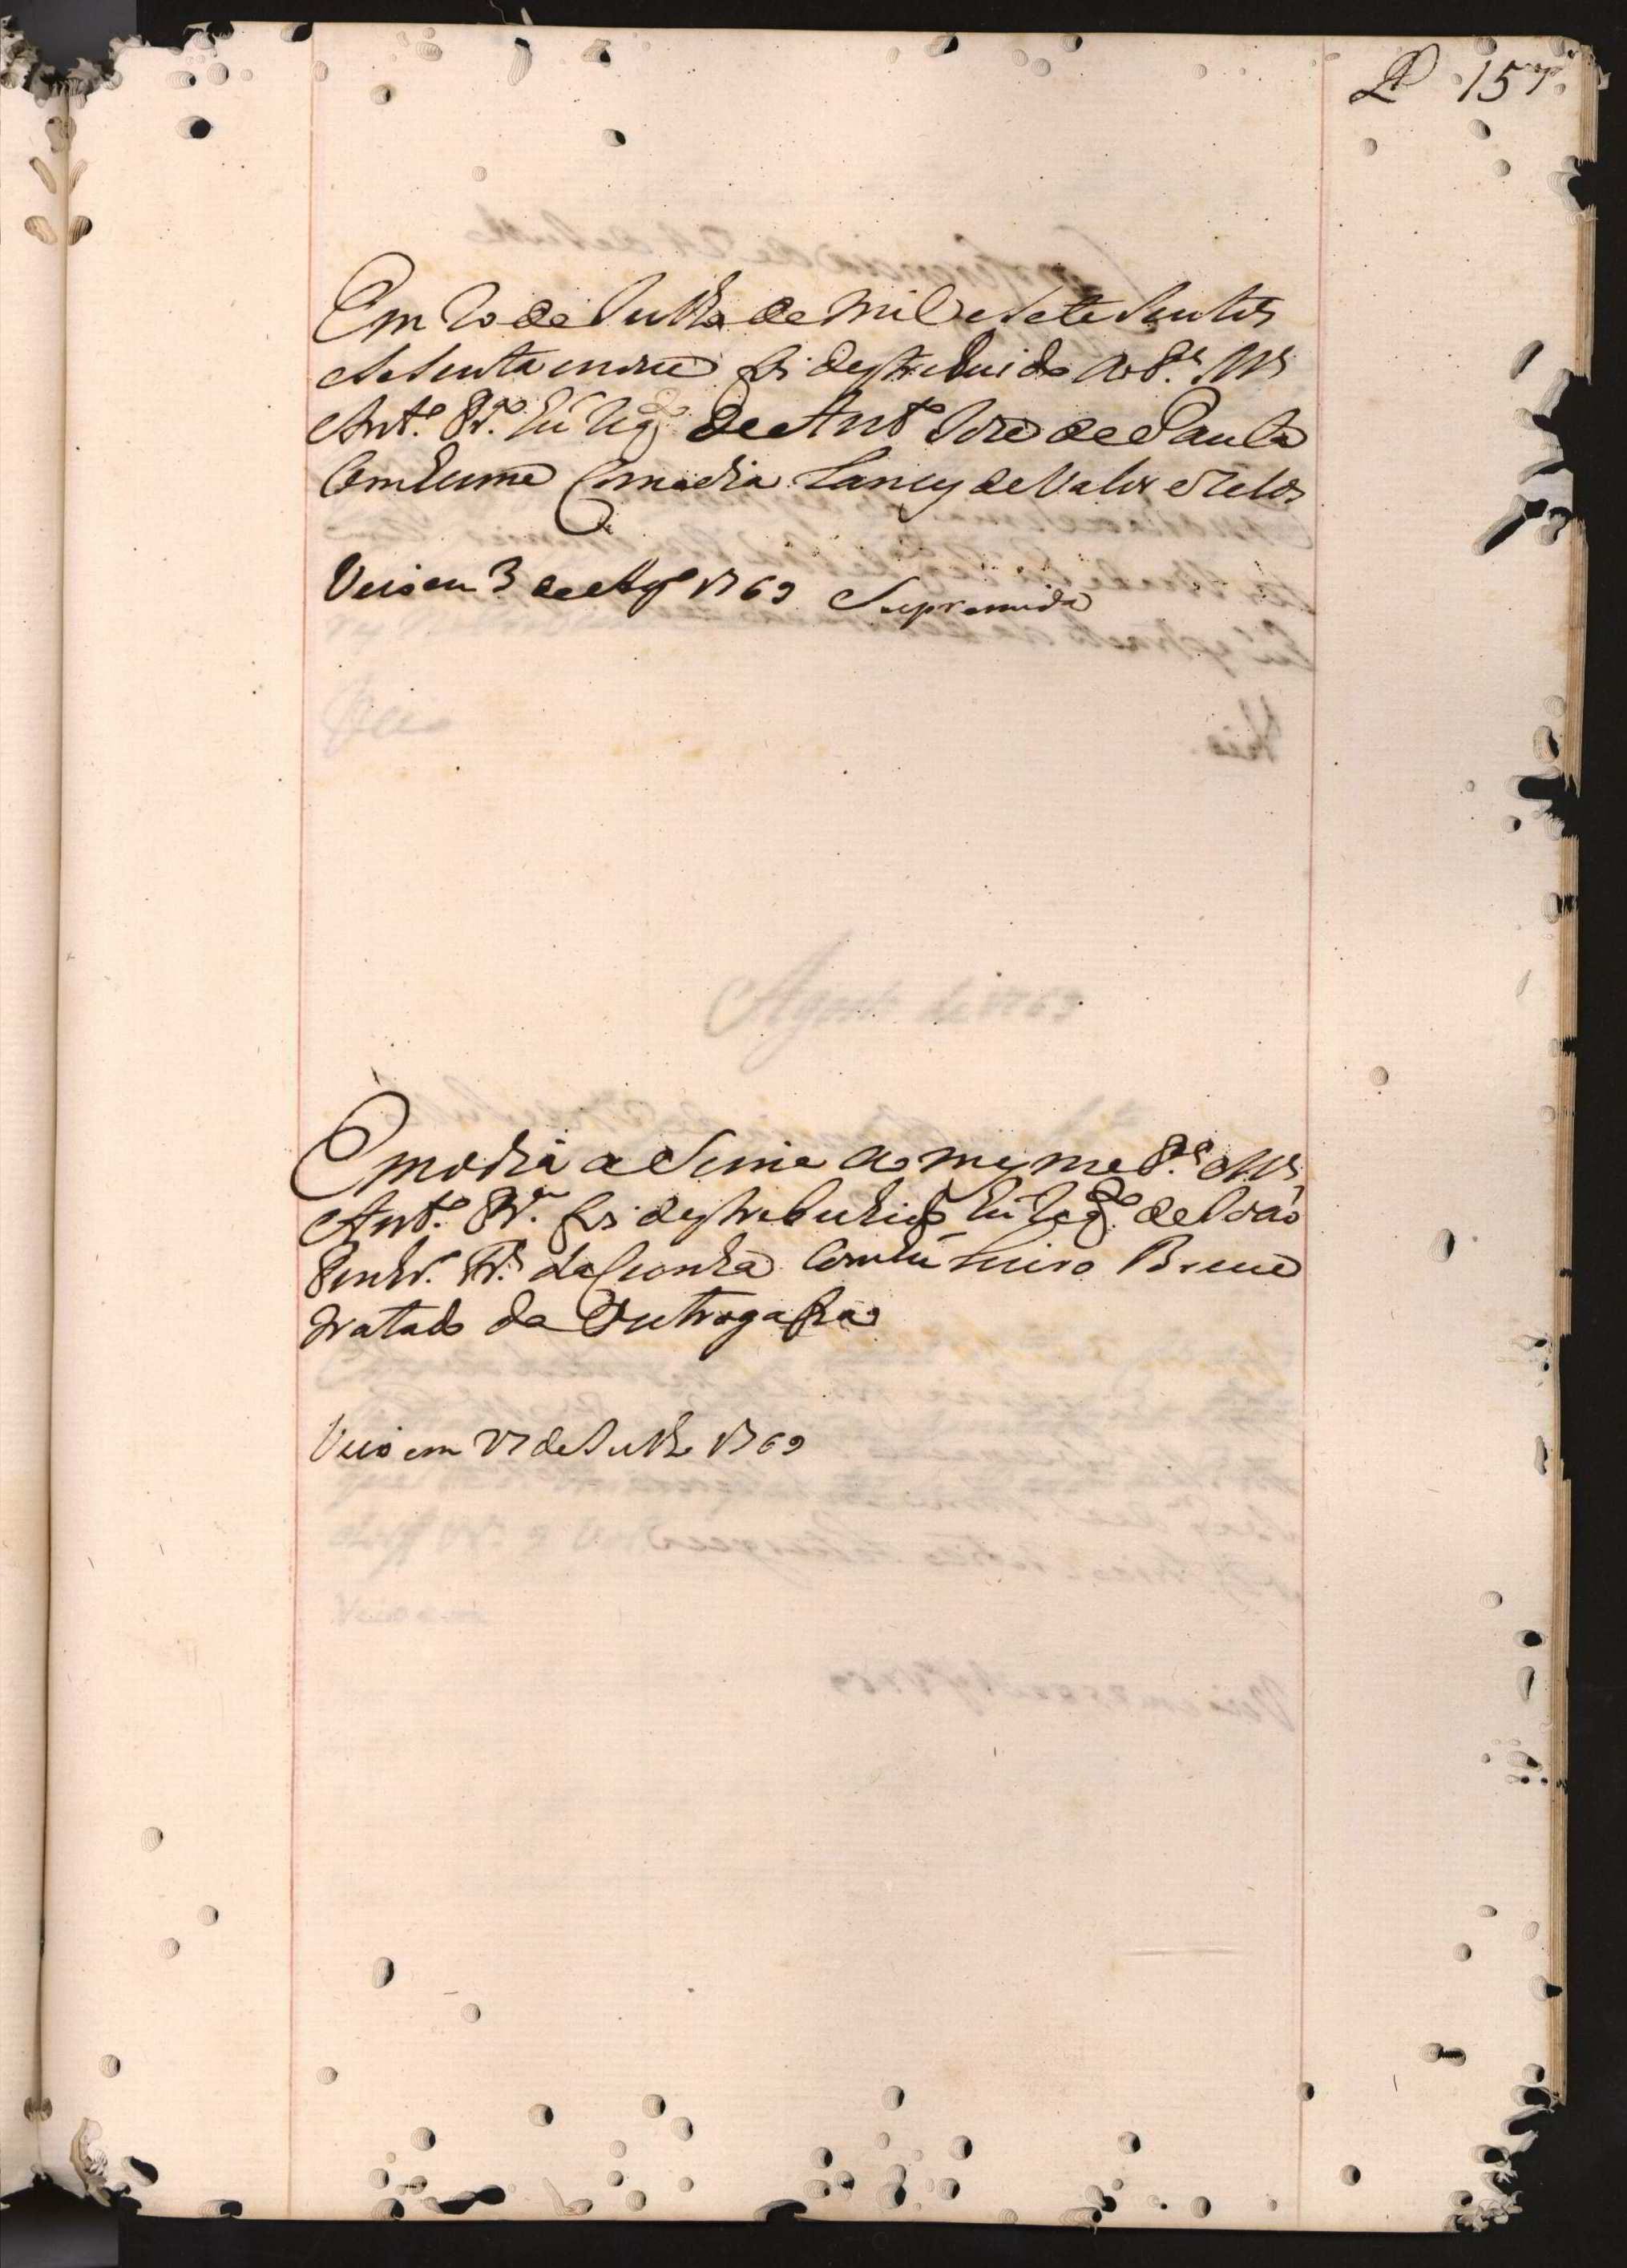 157
Em 20 de Julho de mil e Sete Sentos
e Sesenta e nove foi destrebuido ao P.e M.e
Ant.o Pr.a hũ Req.do de Ant.o Jozé de Paula
Com huma Comedia Lances de Valor e Zelos
Veio em 3 de Ag.o 1769 Supremida
Em o dia aSima ao mesmo P.e M.e
Ant.o Pr.a foi destrebuhido hũ Req.do de João
da Cunha Com hũ Livro Breve
tratado da Ortrografia
Veio em 27 de Julho 1769